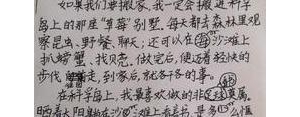 如果我们要搬家，我一定会搬进科学
岛上的那座"草莓"别墅。每天都去森林里观
察昆虫、野餐、聊天；还可以在海沙滩上
扒螃蟹、找贝壳。做完后，便迈着轻快的
步代走，到家后，就各干各的事。
在科学岛上，我最喜欢做的非莫属。
晒着太阳躺在沙滩上看书，是多么惬